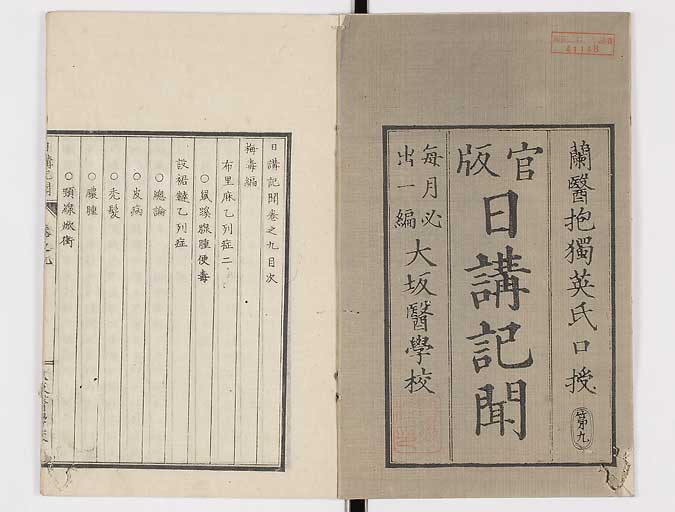 蘭醫抱獨英氏口授
第九
官版
日講記聞
每月必
出一編
大坂醫學校
41148
日講記聞卷之九目次
梅毒編
布里麻乙列症二
○鼠蹊腺腫便毒
設裙鏈乙列症
○總論
○皮病
○禿髮
○膿腫
○頸腺焮衝
日講記聞
卷之九